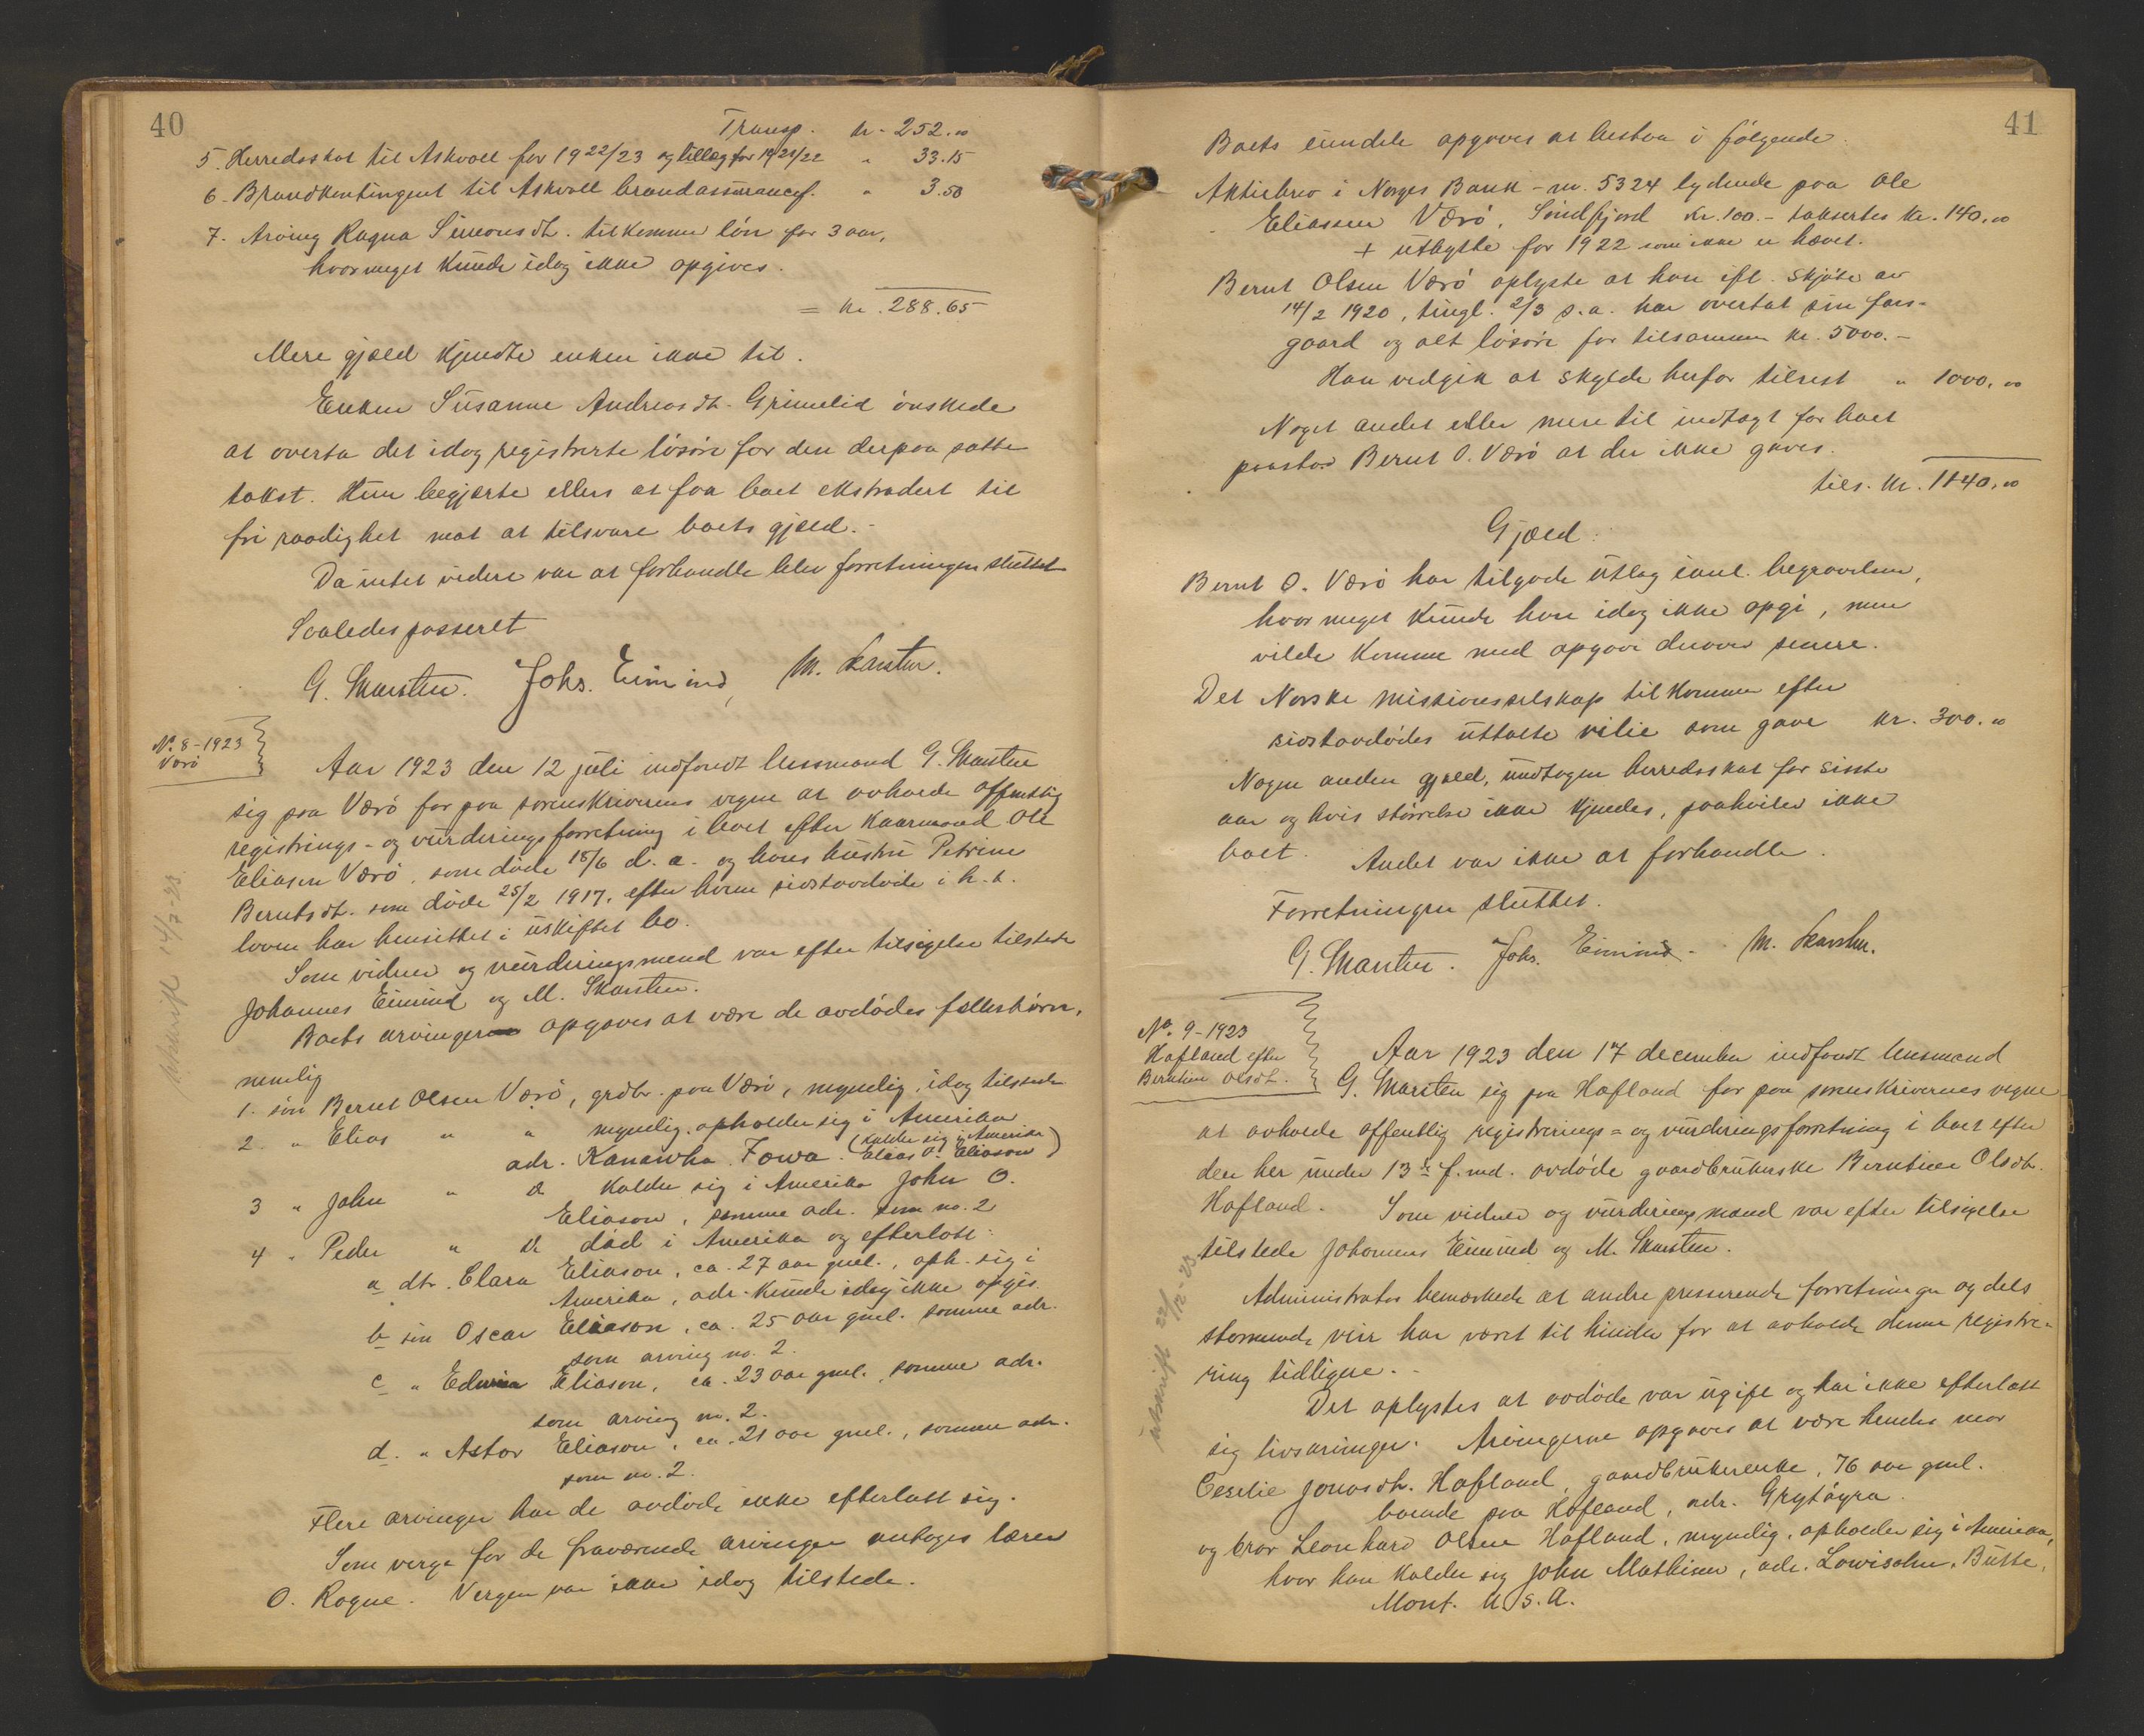 40
Transp. kr. 252.00
5. Herredsskat til Askvoll for 1922/23 og tillæg for 1921/22 " 33.15
6. Brandkontingent til Askvoll brandassurancef. " 3.50
7. Arving Ragna Simonsdt. tilkommer lön for 3 aar,
hvormeget kunde idag ikke opgives.
= kr. 288.65
Mere gjæld kjendte enken ikke til.
Enken Susanne Andreasdt. Grimelid önskede
at overta det idag registrerte lösöre for den derpaa satte
takst. Hun begjærte ellers at faa boet ekstradert til
fri raadighet mot at tilsvare boets gjæld.-
Da intet videre var at forhandle blev forretningen sluttet
Saaledes passeret
G. Skarsten. Johs. Eimind, M. Skarsten.
No. 8-1923
Værö
Aar 1923 den 12 juli indfandt lensmand G. Skarsten
sig paa Værö for paa sorenskriverens vegne at avholde offentlig
registrings- og vurderingsforretning i boet efter kaarmand Ole
Eliasen Værö, som döde 18/6 d. a. og hans hustru Petrine
Berntsdt. som döde 25/2 1917, efter hvem sidstavdöde i h. t.
loven har hensittet i uskiftet bo.
Som vidner og vurderingsmænd var efter tilsigelse tilstede
Johannes Eimind og M. Skarsten.
Boets arvinger opgaves at være de avdödes fællesbörn,
nemlig
1. sön Bernt Olsen Værö, grdbr. paa Værö, myndig, idag tilstede
2. " Elias " " myndig, opholder sig i Amerika
adr. Kanawha Iowa. (kalder sig i Amerika Elias O. Eliason)
3 " John " " kalder sig i Amerika John O.
Eliason, samme adr. som no. 2
4 " Peder " " död i Amerika og efterlatt:
a dtr. Clara Eliason, ca. 27 aar gml., oph. sig i
Amerika, adr. kunde idag ikke opgis.
b sön Oscar Eliason, ca. 25 aar gml. samme adr.
som arving no. 2.
c " Edwin Eliason, ca. 23 aar gml., samme adr.
som arving no. 2.
d. " Astor Eliason, ca. 21 aar gml., samme adr.
som no. 2.
Flere arvinger har de avdöde ikke efterlatt sig.
Som verge for de fraværende arvinger antages lærer
O. Rogne. Vergen var ikke idag tilstede.
utskrift 14/7-23
41
Boets eiendele opgaves at bestaa i fölgende:
Aktiebrev i Norges Bank - nr. 5324 lydende paa Ole
Eliassen Værö, Söndfjord kr. 100.- taksertes kr. 140.00
+ utbytte for 1922 som ikke er hævet.
Bernt Olsen Værö oplyste at han ifl. skjöte av
14/2 1920, tingl. 2/3 s.a. har overtat sin fars-
gaard og alt lösöre for tilsammen kr. 5000.-
Han vedgik at skylde herfor tilrest " 1000.00
Noget andet eller mere til indtægt for boet
paastod Bernt O. Værö at der ikke gaves.
tils. kr. 1140.00
Gjæld:
Bernt O. Værö har tilgode utlæg inkl. begravelsen,
hvor meget kunde han idag ikke opgi, men
vilde komme med opgave derover senere.
Det Norske missionsselskap tilkommer efter
sidstavdödes uttalte vilie som gave kr. 300.00
Nogen anden gjæld, undtagen herredsskat for sisste
aar og hvis störrelse ikke kjendes, paahviler ikke
boet. Andet var ikke at forhandle.
Forretningen sluttet.
G. Skarsten. Johs. Eimind - M. Skarsten.
No. 9-1923
Hafland efter
Berntine Olsdt.
Aar 1923 den 17 december indfandt lensmand
G. Skarsten sig paa Hafland for paa sorenskriverens vegne
at avholde offentlig registrerings- og vurderingsforretning i boet efter
den her under 13de f. md. avdöde gaardbrukerske Berntine Olsdtr.
Hafland. Som vidner og vurderingsmænd var efter tilsigelse
tilstede Johannes Eimind og M. Skarsten.
Administrator bemerkede at andre presserende forretninger og dels
stormende veir har været til hinder for at avholde denne registre-
ring tidligere.-
Det oplystes at avdöde var ugift og har ikke efterlatt
sig livsarvinger. Arvingerne opgaves at være hendes mor
Ceselie Jonasdtr. Hafland, gaardbrukerenke, 76 aar gml.
boende paa Hafland, adr. Grytöyra
og bror Leonhard Olsen Hafland, myndig, opholder sig i Amerika,
hvor han kalder sig John Mathisen, adr. Lowisohn, Butte,
Mont. U.S.A.
utskrift 22/12-23